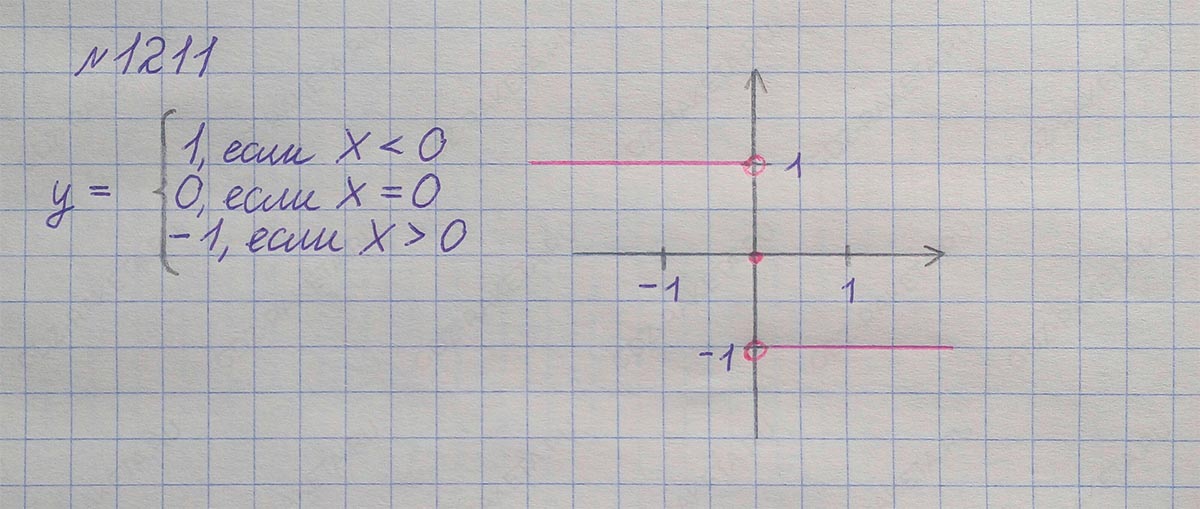 №1211
1, если x < 0
y = 0, если x = 0
-1, если x > 0
1
-1 1
-1